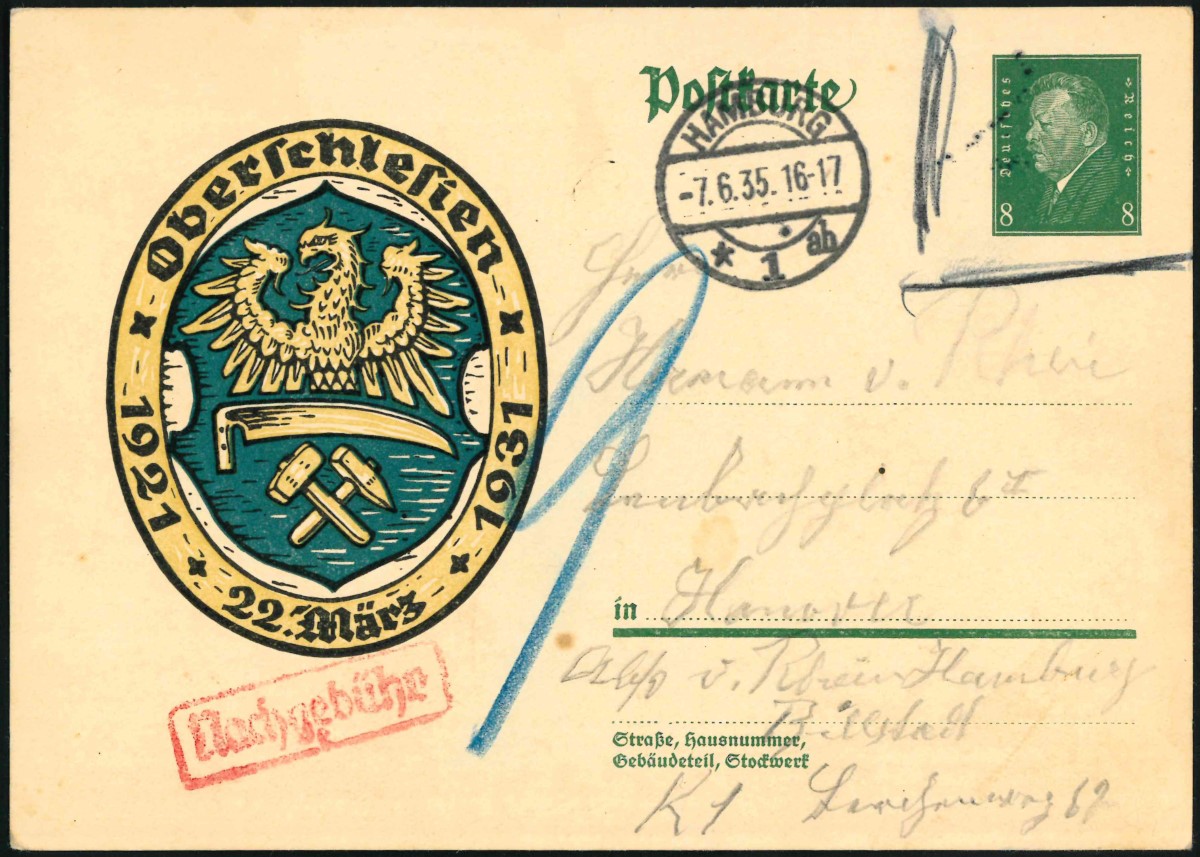 Postkarte
Deutsches Reich
8 8
HAMBURG
-7.6.35.16-17
* 1 ah
Oberschlesien
1921 1931
22. März
Nachgebühr
9
Herrn
Hermann v. Rhein
6 I
in Hannover
Abs v. Rhein Hamburg
Billstedt
Straße, Hausnummer,
Gebäudeteil, Stockwerk
K1 Lerchenweg 62